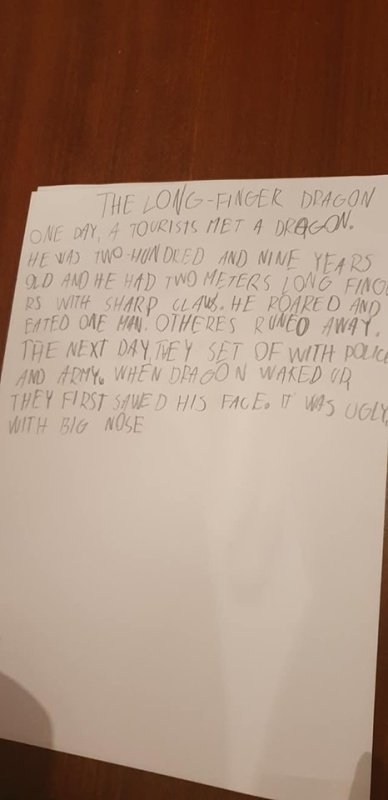 THE LONG-FINGER DRAGON
ONE DAY, A TOURISTS MET A DRAGON.
HE WAS TWO-HUNDRED AND NINE YEARS
OLD AND HE HAD TWO METERS LONG FINGE
RS WITH SHARP CLAWS. HE ROARED AND
EATED ONE MAN. OTHERES RUNED AWAY.
THE NEXT DAY, THEY SET OF WITH POLICE
AND ARMY. WHEN DRAGON WAKED UP,
THEY FIRST SAWED HIS FACE. IT WAS UGLY,
WITH BIG NOSE